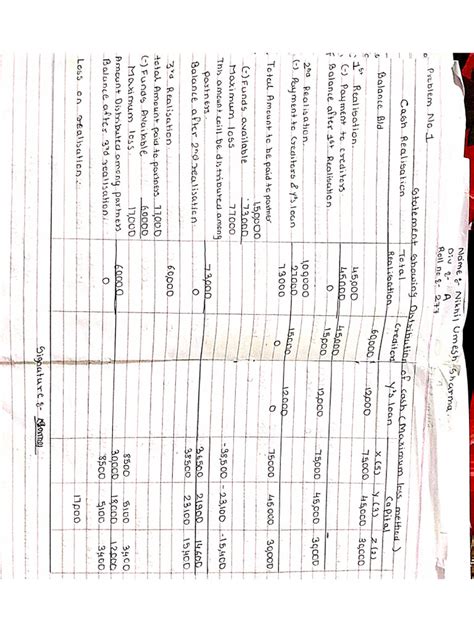 Name :- Nikhil Umesh Sharma.
Div :- A
Roll no :- 277
Problem No. 1
Statement Showing Distribution of cash (Maximum loss method)
Cash Realisation Total Realisation Creditors Y's loan Capital
X (5) Y (3) Z (2)
Balance B/d 60,000 12,000 75,000 45,000 30,000
1st Realisation. 45,000
(-) Payment to creditors 45,000 45,000
Balance after 1st Realisation 0 15,000 12,000 75,000 45,000 30,000
2nd Realisation. 100,000
(-) Payment to Creditors & Y's loan 27,000 15,000 12,000
73,000 0 0 75,000 45,000 30,000
Total Amount to be paid to partner 1,50,000
(-) Funds available - 73,000
Maximum loss 77,000 -38,500 -23,100 -15,400
This amount will be distributed among partners 73,000 36,500 21,900 14,600
Balance after 2nd realisation 0 38,500 23,100 15,400
3rd Realisation. 60,000
total Amount paid to partners 77,000
(-) Funds Available 60,000
Maximum loss 17,000 8,500 5,100 3,400
Amount Distributed among partners 60,000 30,000 18,000 12,000
Balance after 3rd realisation. 0 8,500 5,100 3,400
Loss on realisation. 17,000
Signature :-